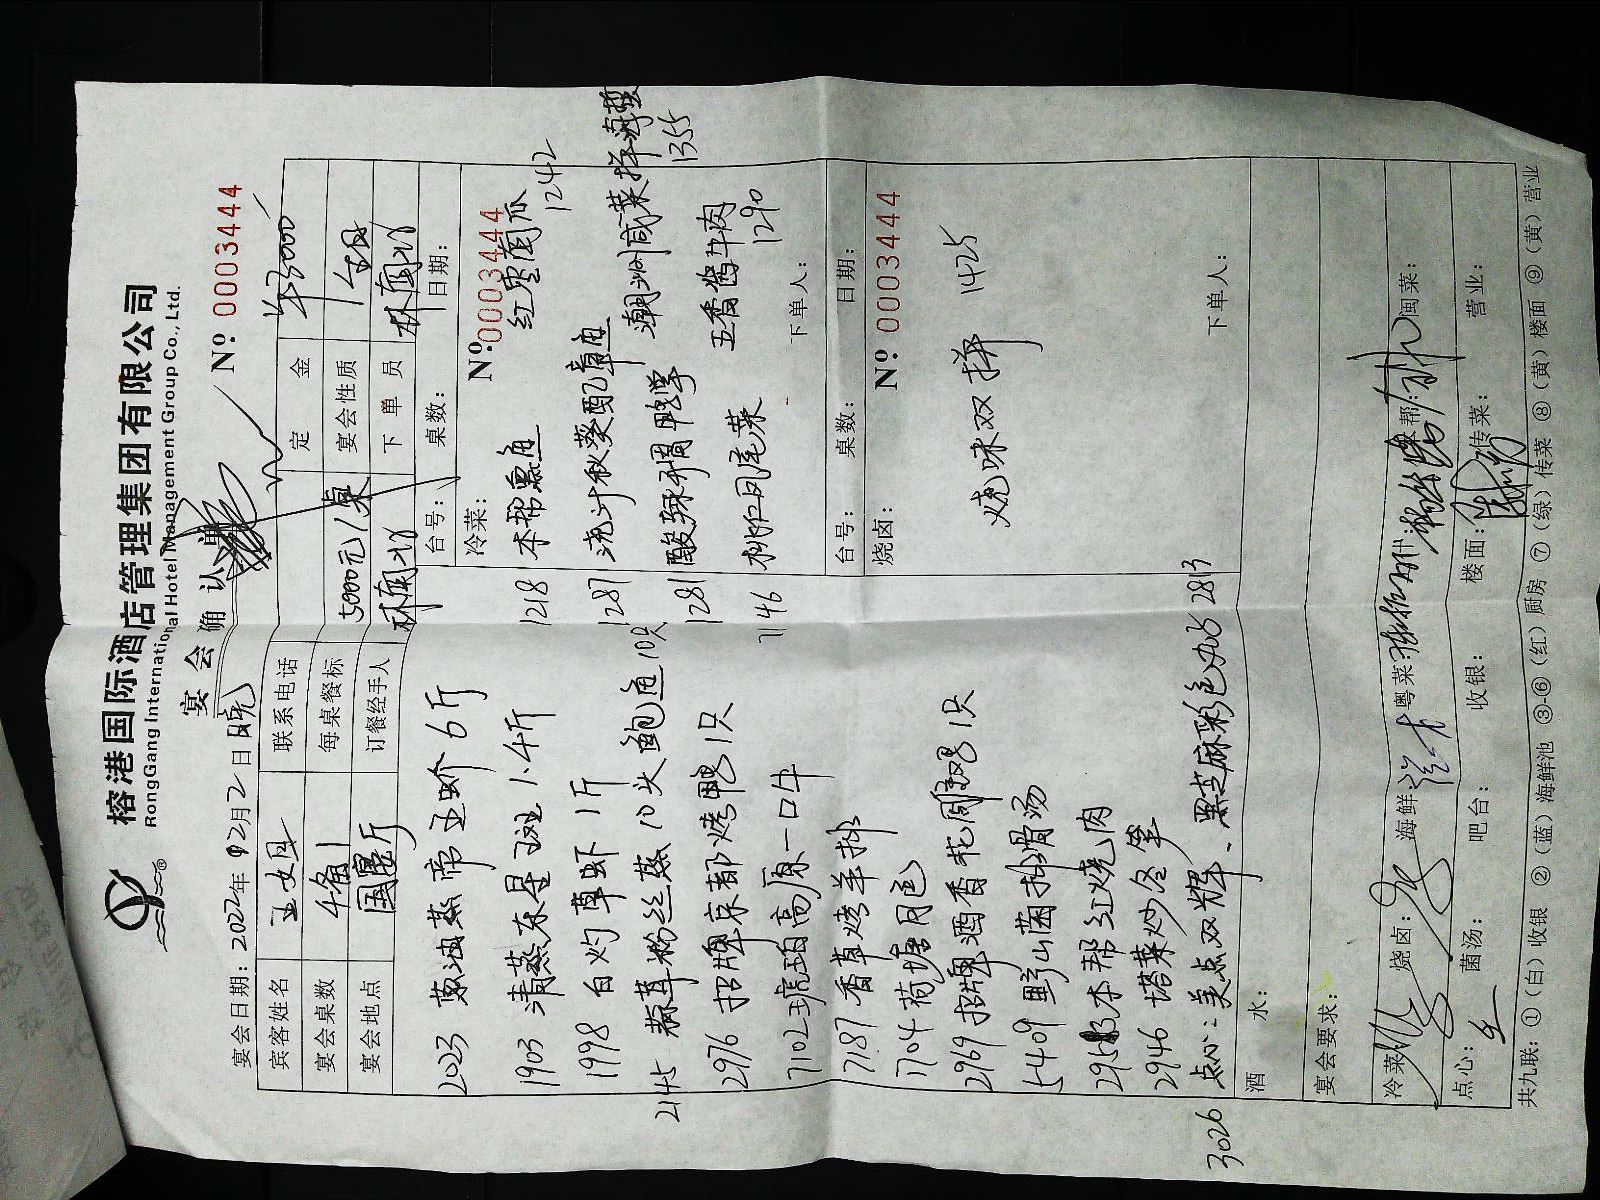 榕港国际酒店管理集团有限公司
RongGang International Hotel Management Group Co., Ltd.
宴会确认单
宴会日期：2022年12月2日 晚
Nº 0003444
宾客姓名 王女士 联系电话 定金 ¥3000
宴会桌数 每桌餐标 5000元/桌 宴会性质
宴会地点 国宴厅 订餐经手人 下单员
2023 葱油蒸帝王蚧6斤
1903 清蒸东星斑1.4斤
1998 白灼草虾1斤
2145 蒜茸粉丝蒸10头鲍鱼10只
2976 招牌京都烤鸭1只
7102 琥珀高原一口牛
7187 香草烤羊排
1704 荷塘月色
2969 招牌酒香花雕鸡1只
5409 野山菌排骨汤
本帮红烧肉
2946 塔菜炒冬笋
3026 点心：美点双辉、黑芝麻彩色 2813
台号： 桌数： 日期：
冷菜： Nº 0003444
1218 本帮熏鱼 红枣南瓜 1242
1287 秋葵配章鱼 潮州咸菜拌海蜇 1355
1281 酸辣 鸭掌 五香酱牛肉 1290
7146 桃仁凤尾菜
下单人：
台号： 桌数： 日期：
烧卤： Nº 0003444
烧味双拼 1425
下单人：
酒水：
宴会要求：
冷菜 烧卤： 海鲜 粤菜： 帮： 闽菜：
点心： 菌汤： 吧台： 收银： 楼面： 传菜： 营业：
共九联：①（白）收银 ②（蓝）海鲜池 ③-⑥（红）厨房 ⑦（绿）传菜 ⑧（黄）楼面 ⑨（黄）营业